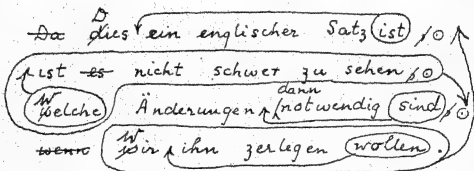 Da D dies ein englischer Satz ist, ⊙
ist es nicht schwer zu sehen, ⊙
W welche Änderungen dann notwendig sind, ⊙
wenn W wir ihn zerlegen wollen.